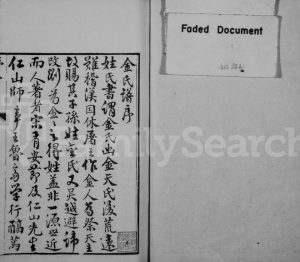 金氏譜序
姓氏書謂金氏出金天氏後荒遠
難稽漢因休屠王作金人為祭天主
故賜其子孫姓金氏又吳越避諱
改劉為金金之得姓蓋非一源近
而人著者宋有安節及仁山先生
仁山師事魯齋學行醇篤
Faded Document
FamilySearch